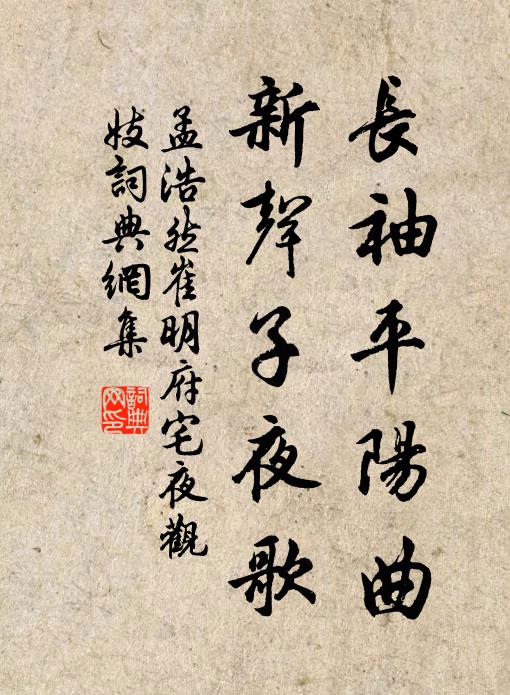 長袖平陽曲
新聲子夜歌
孟浩然崔明府宅夜觀
妓詞典網集
詞典网印